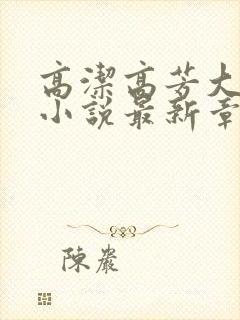 高潔高芳大
小說最新章
陳巖